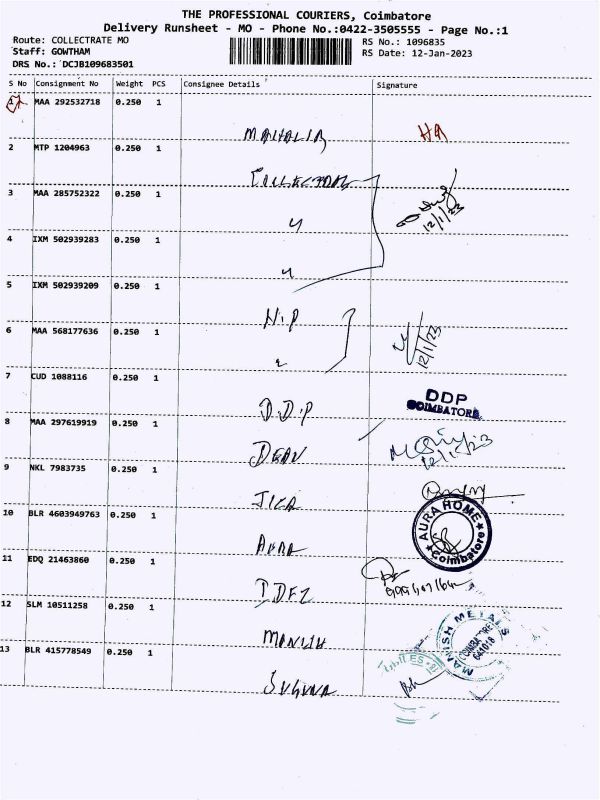 THE PROFESSIONAL COURIERS, Coimbatore
Delivery Runsheet - MO - Phone No.:0422-3505555 - Page No.:1
Route: COLLECTRATE MO
RS No.: 1096835
Staff: GOWTHAM
RS Date: 12-Jan-2023
DRS No.: DCJB109683501
S No Consignment No Weight PCS Consignee Details Signature
1 MAA 292532718 0.250 1
HA
2 MTP 1204963 0.250 1
COLLECTOR
3 MAA 285752322 0.250 1
12/1/23
4 IXM 502939283 0.250 1
5 IXM 502939209 0.250 1
H.P
6 MAA 568177636 0.250 1
12/1/23
7 CUD 1088116 0.250 1
D.D.P
DDP
COIMBATORE
8 MAA 297619919 0.250 1
DEAN
9 NKL 7983735 0.250 1
JICA
10 BLR 4603949763 0.250 1
AURA
AURA HOME
Coimbatore
11 EDQ 21463860 0.250 1
12 SLM 10511258 0.250 1
MANISH
MANISH METALS
COIMBATORE
641018
13 BLR 415778549 0.250 1
SUGUNA